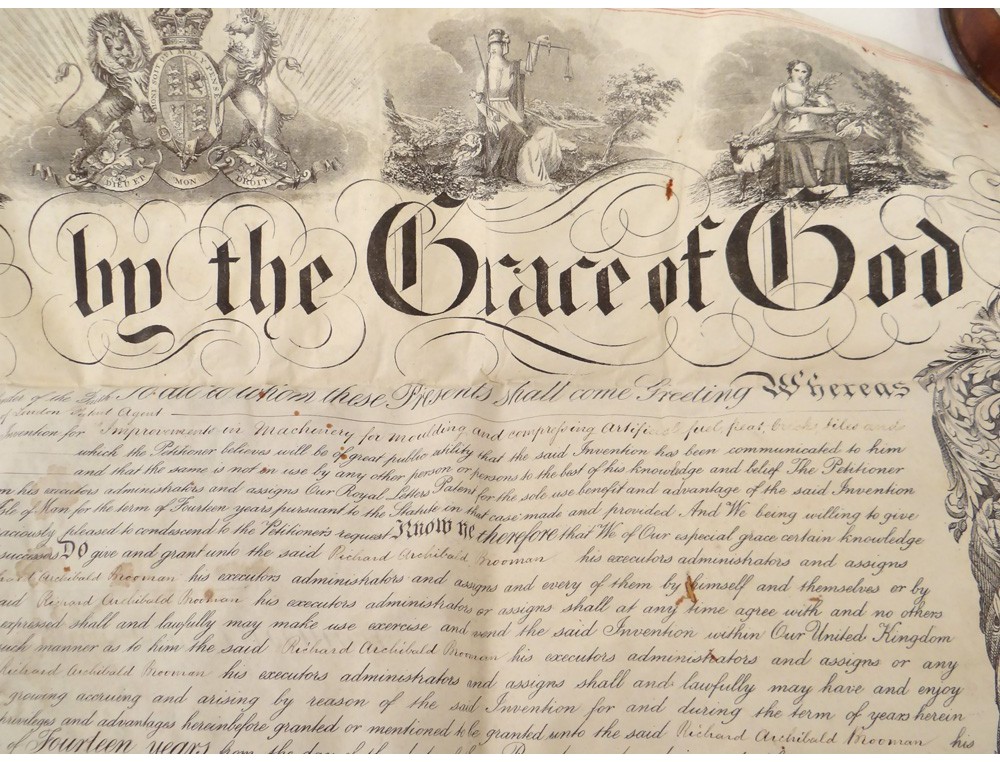 DIEU ET MON DROIT
by the Grace of God
To all to whom these Presents shall come Greeting Whereas
of London Patent Agent
Invention for Improvements in Machinery for moulding and compressing Artificial fuel, peat, bricks tiles and
which the Petitioner believes will be of great public utility that the said Invention has been communicated to him
and that the same is not in use by any other person or persons to the best of his knowledge and belief The Petitioner
his executors administrators and assigns Our Royal Letters Patent for the sole use benefit and advantage of the said Invention
Isle of Man for the term of Fourteen years pursuant to the Statute in that case made and provided And We being willing to give
pleased to condescend to the Petitioners request Know ye therefore that We of Our especial grace certain knowledge
successors Do give and grant unto the said Richard Archibald Brooman his executors administrators and assigns
Archibald Brooman his executors administrators and assigns and every of them by himself and themselves or by
said Richard Archibald Brooman his executors administrators or assigns shall at any time agree with and no others
expressed shall and lawfully may make use exercise and vend the said Invention within Our United Kingdom
such manner as to him the said Richard Archibald Brooman his executors administrators and assigns or any
Richard Archibald Brooman his executors administrators and assigns shall and lawfully may have and enjoy
growing accruing and arising by reason of the said Invention for and during the term of years herein
privileges and advantages hereinbefore granted or mentioned to be granted unto the said Richard Archibald Brooman his
of Fourteen years from the day of the date